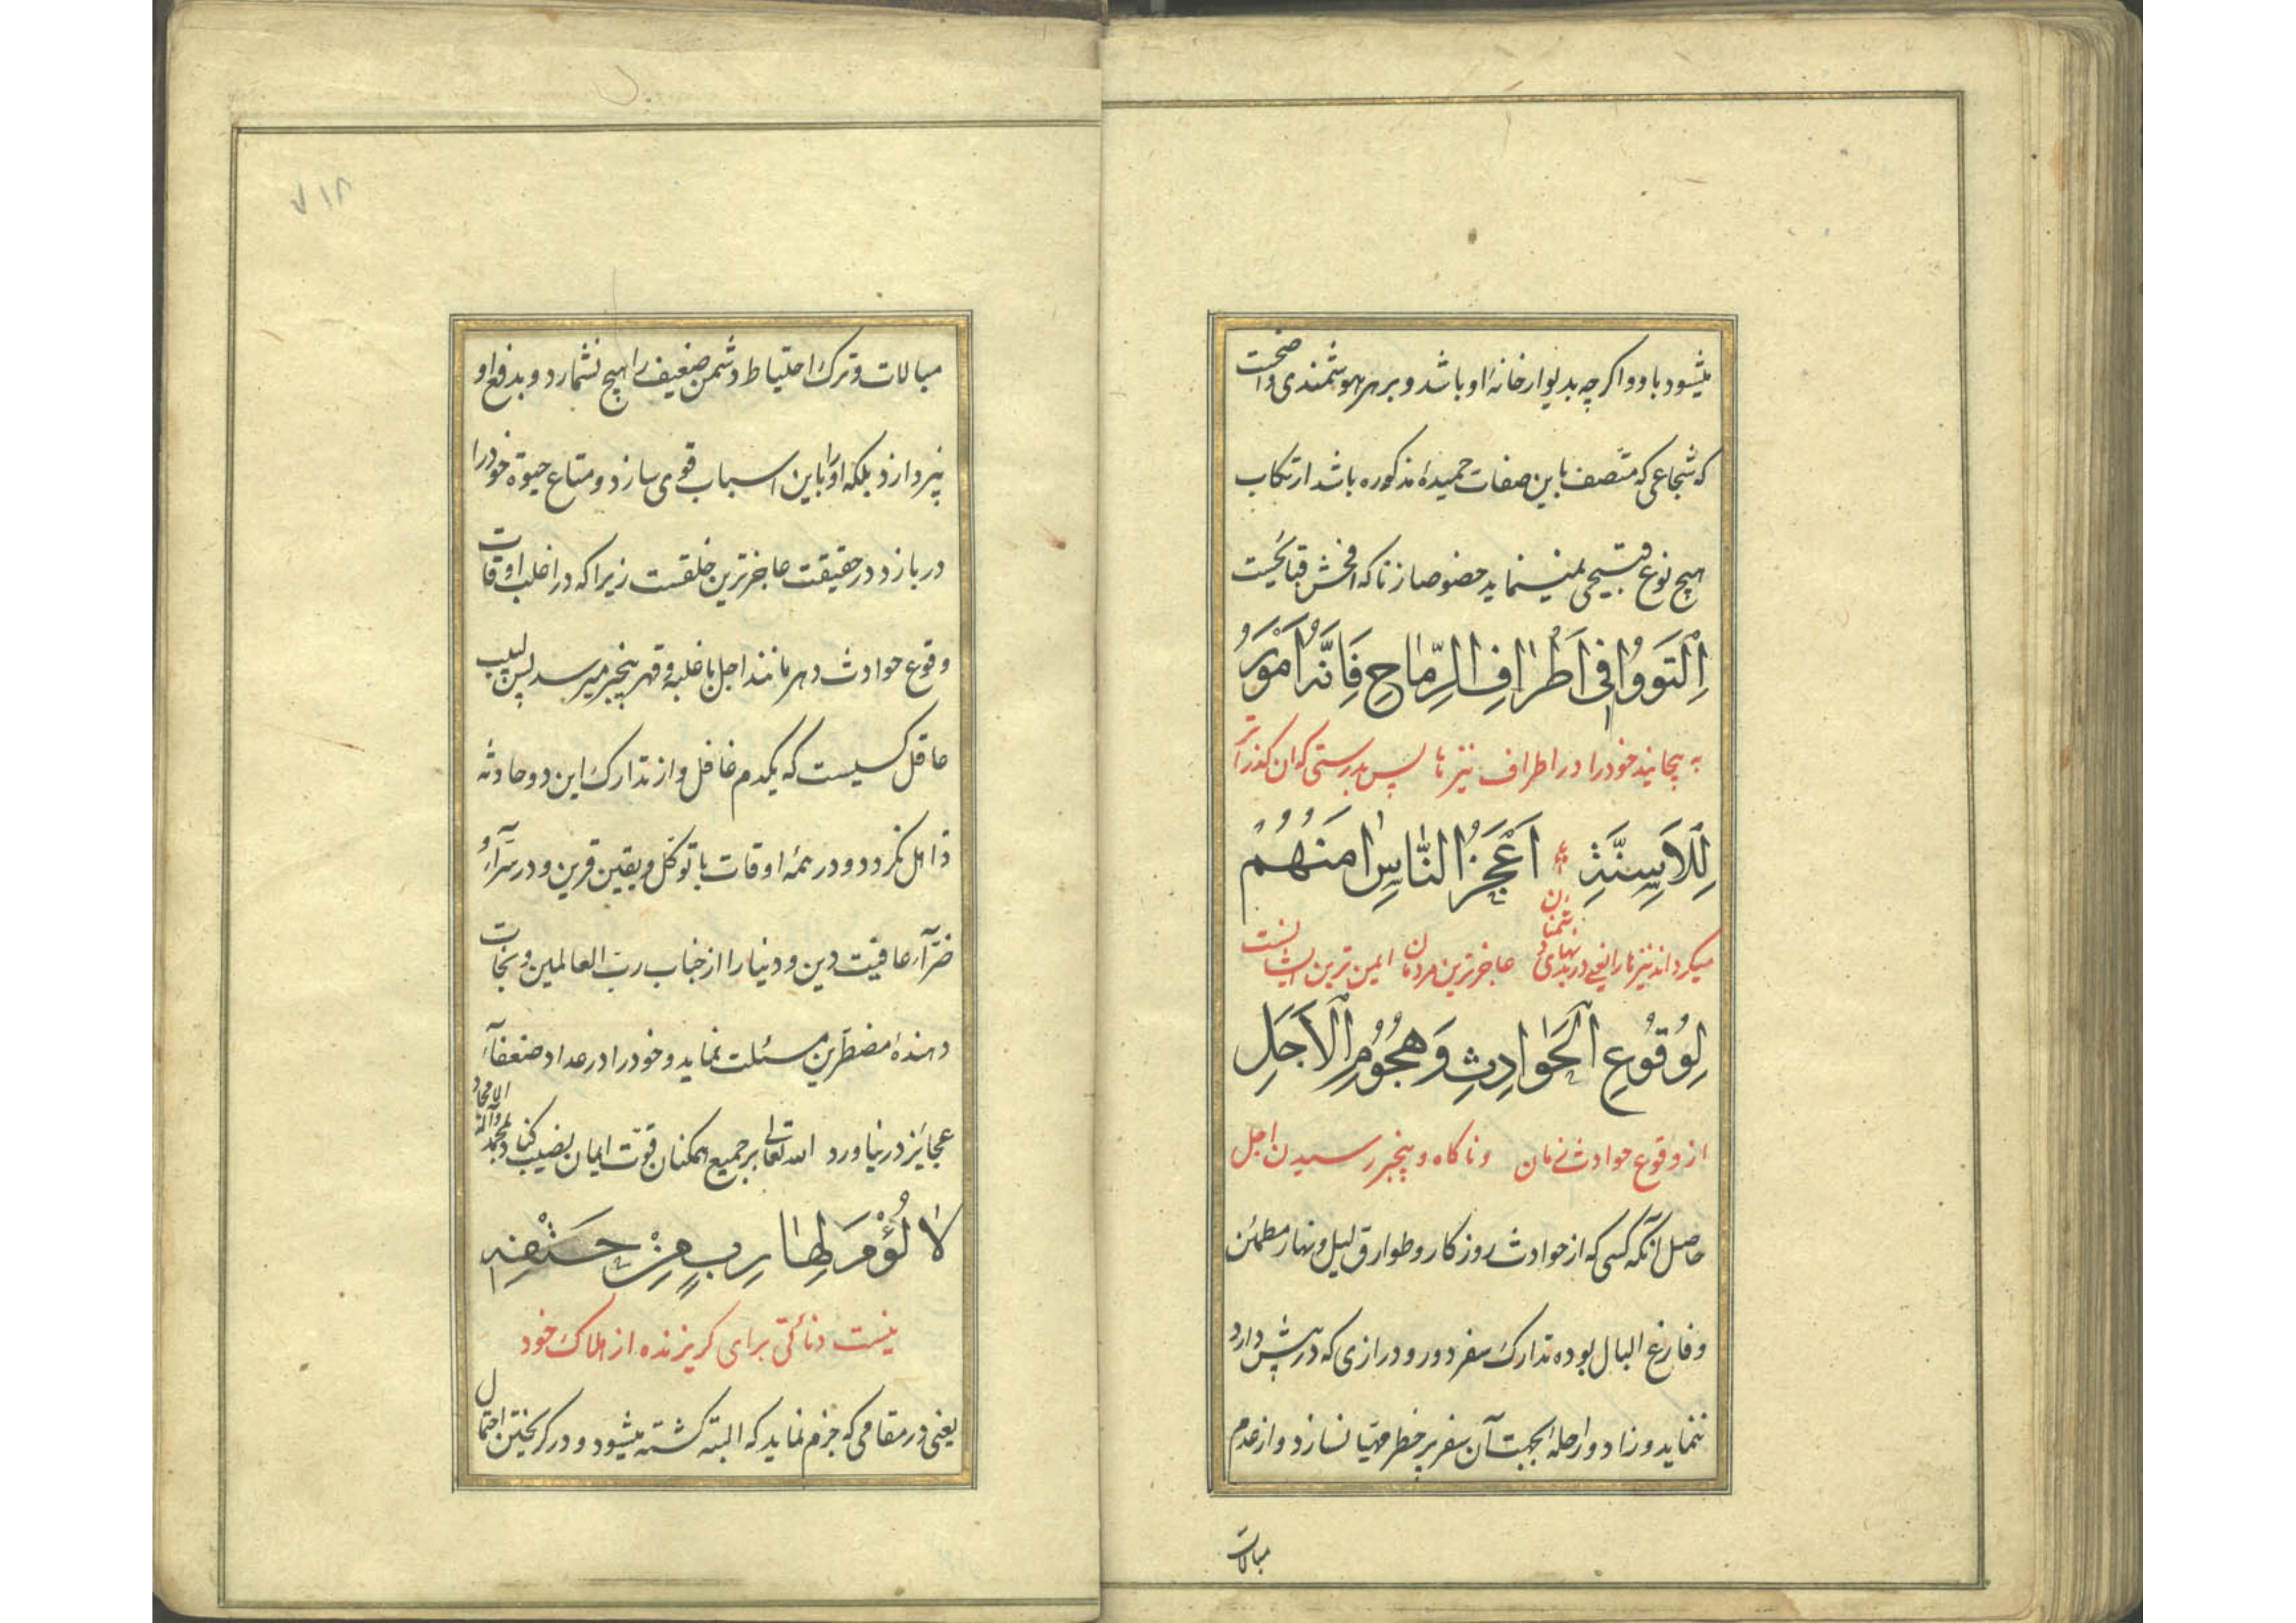 میشود با او و اگر چه بدیوار خانهٔ او باشد و بر هر هوشمندی واضحست
که شجاعی که متّصف باین صفات حمیدهٔ مذکوره باشد ارتکاب
هیچ نوع قبیحی نمینماید خصوصا زنا که افحش قبایحست
اِلْتَوَوُا فِی اَطْرٰافِ الرِّمٰاحِ فَاِنَّهُ اَمْوَرُ
به پیچانید خود را در اطراف نیزها پس بدرستی که ان گذراتر
لِلاَسِنَّةِ اَعْجَزُ النّٰاسِ اٰمَنُهُمْ
میکرداند نیزها را یعنی در بدنهای دشمنان عاجزترین مردمان ایمن ترین ایشانست
لِوُقُوعِ الْحَوٰادِثِ وَهُجُوُمِ الْاَجَلِ
از وقوع حوادث زمان و ناکاه و بیخبر رسیدن اجل
حاصل آنکه کسی که از حوادث روزکار و طوارق لیل و نهار مطمئن
و فارغ البال بوده تدارک سفر دور و درازی که در پیش دارد
ننماید و زاد و راحله بجهت آن سفر پر خطر مهیّا نسازد و از عدم
مبالات
۷۱۸
مبالات و ترک احتیاط دشمن ضعیف را هیچ نشمارد و بدفع او
نپردازد بلکه او را باین اسباب قوی سازد و متاع حیوة خود را
دربازد در حقیقت عاجزترین خلقست زیرا که در اغلب اوقات
وقوع حوادث دهر مانند اجل با غلبه و قهر بیخبر میرسد پس لبیب
عاقل کسیست که یکدم غافل و از تدارک این دو حادثه
ذاهل نکردد و در همهٔ اوقات با توکّل و یقین قرین و در سرّآء و
ضرّآء عاقبت دین و دنیا را از جناب ربّ العالمین و نجات
دهندهٔ مضطرّین مسئلت نماید و خود را در عداد ضعفآء
عجایز در نیاورد الله تعالی بر جمیع همکنان قوّت ایمان نصیب کناد بمحمد وآله الامجاد
لٰا لُؤْمَ لِهٰارِبٍ مِنْ حَتْفِهِ
نیست دنائتی برای کریزنده از هلاک خود
یعنی در مقامی که جزم نماید که البته کشته میشود و در کریختن احتمال